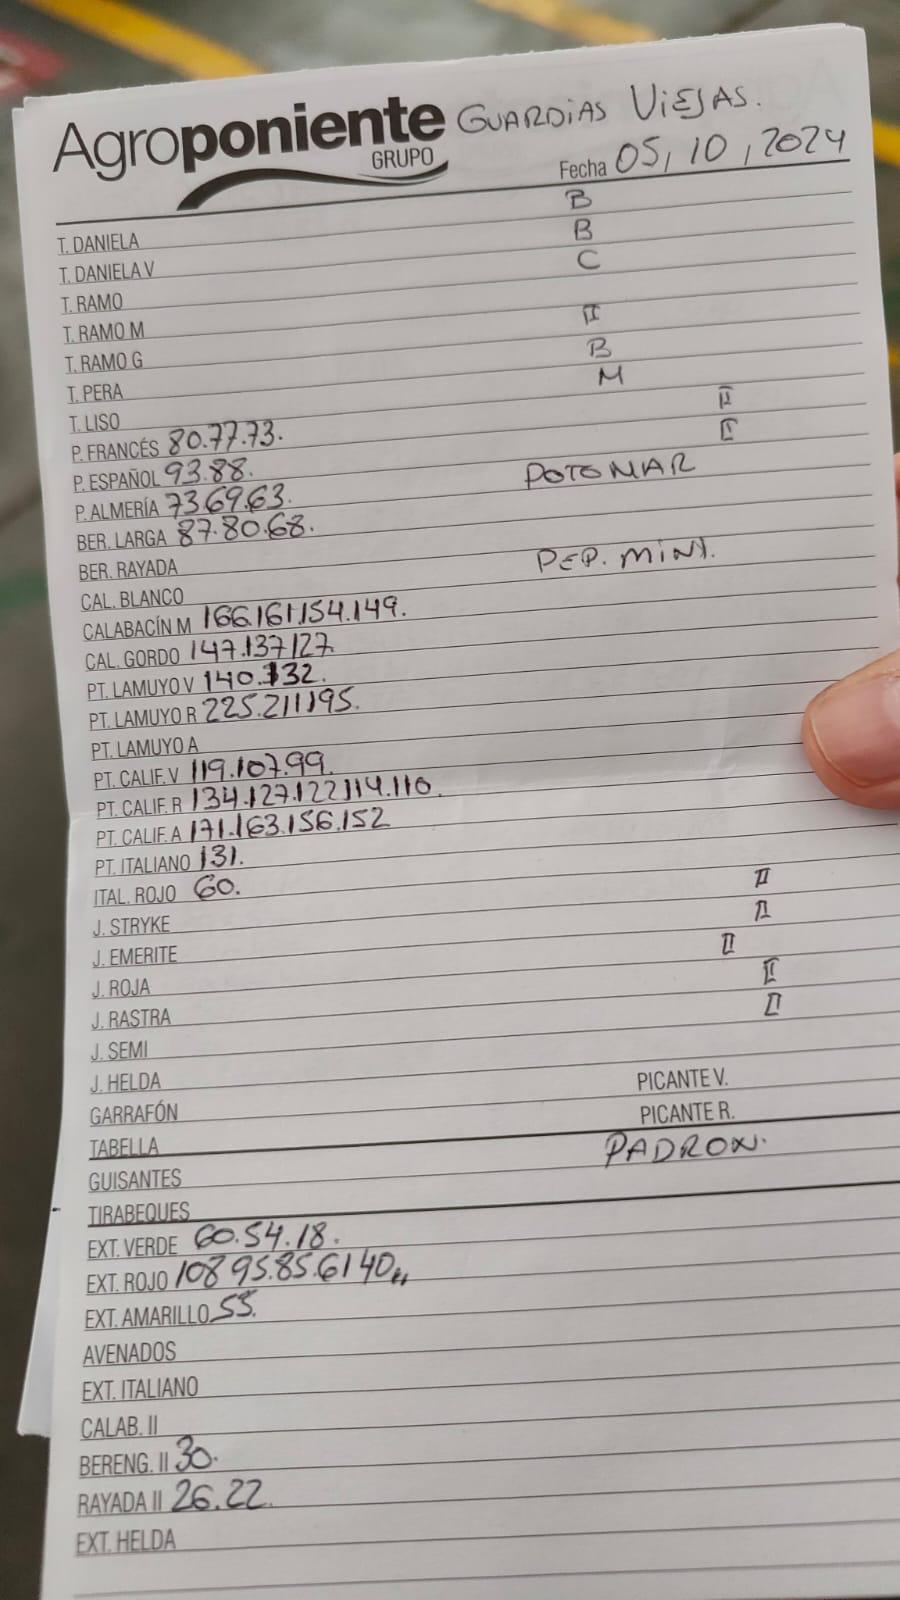 Agroponiente GUARDIAS VIEJAS.
GRUPO
Fecha 05, 10, 2024
T. DANIELA B
T. DANIELA V B
T. RAMO C
T. RAMO M
T. RAMO G II
T. PERA B
T. LISO M
P. FRANCÉS 80.77.73. II
P. ESPAÑOL 93.88. II
P. ALMERÍA 73.69.63. POTOMAR
BER. LARGA 87.80.68.
BER. RAYADA
CAL. BLANCO PEP. MINI.
CALABACÍN M 166.161.154.149.
CAL. GORDO 147.137.127.
PT. LAMUYO V 140.132.
PT. LAMUYO R 225.211.195.
PT. LAMUYO A
PT. CALIF. V 119.107.99.
PT. CALIF. R 134.127.122.114.110.
PT. CALIF. A 171.163.156.152
PT. ITALIANO 131.
ITAL. ROJO 60.
J. STRYKE II
J. EMERITE II
J. ROJA II
J. RASTRA II
J. SEMI II
J. HELDA
GARRAFÓN PICANTE V.
TABELLA PICANTE R.
GUISANTES PADRON.
TIRABEQUES
EXT. VERDE 60.54.18.
EXT. ROJO 108 95.85.61 40,,
EXT. AMARILLO 55.
AVENADOS
EXT. ITALIANO
CALAB. II
BERENG. II 30.
RAYADA II 26.22.
EXT. HELDA